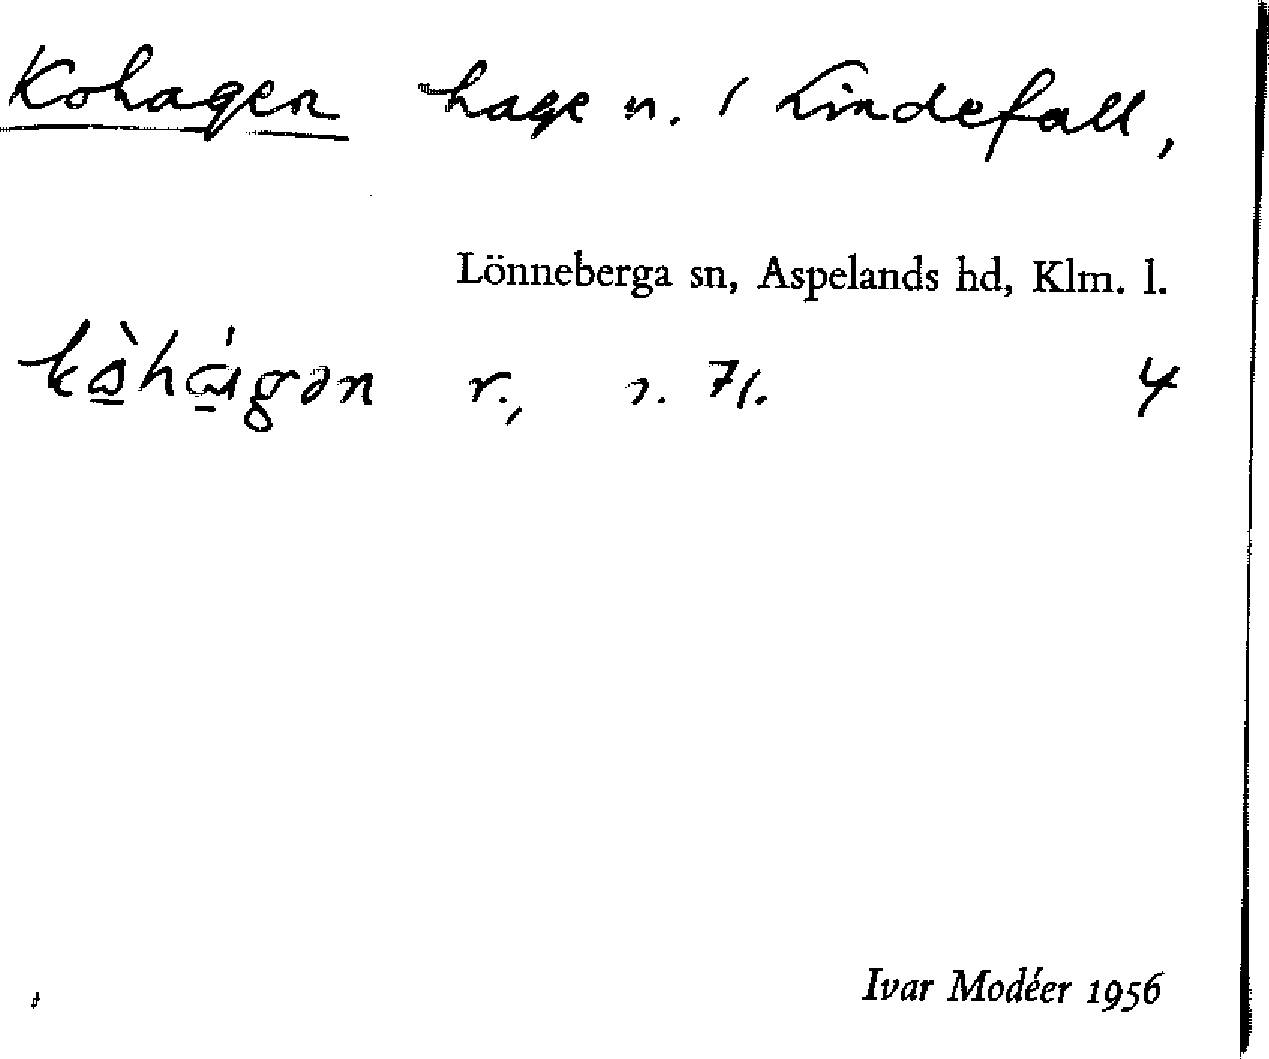 Kohagen hage n. i Lindefall,
Lönneberga sn, Aspelands hd, Klm. l.
kòhágən r., n. 71. 4
Ivar Modéer 1956